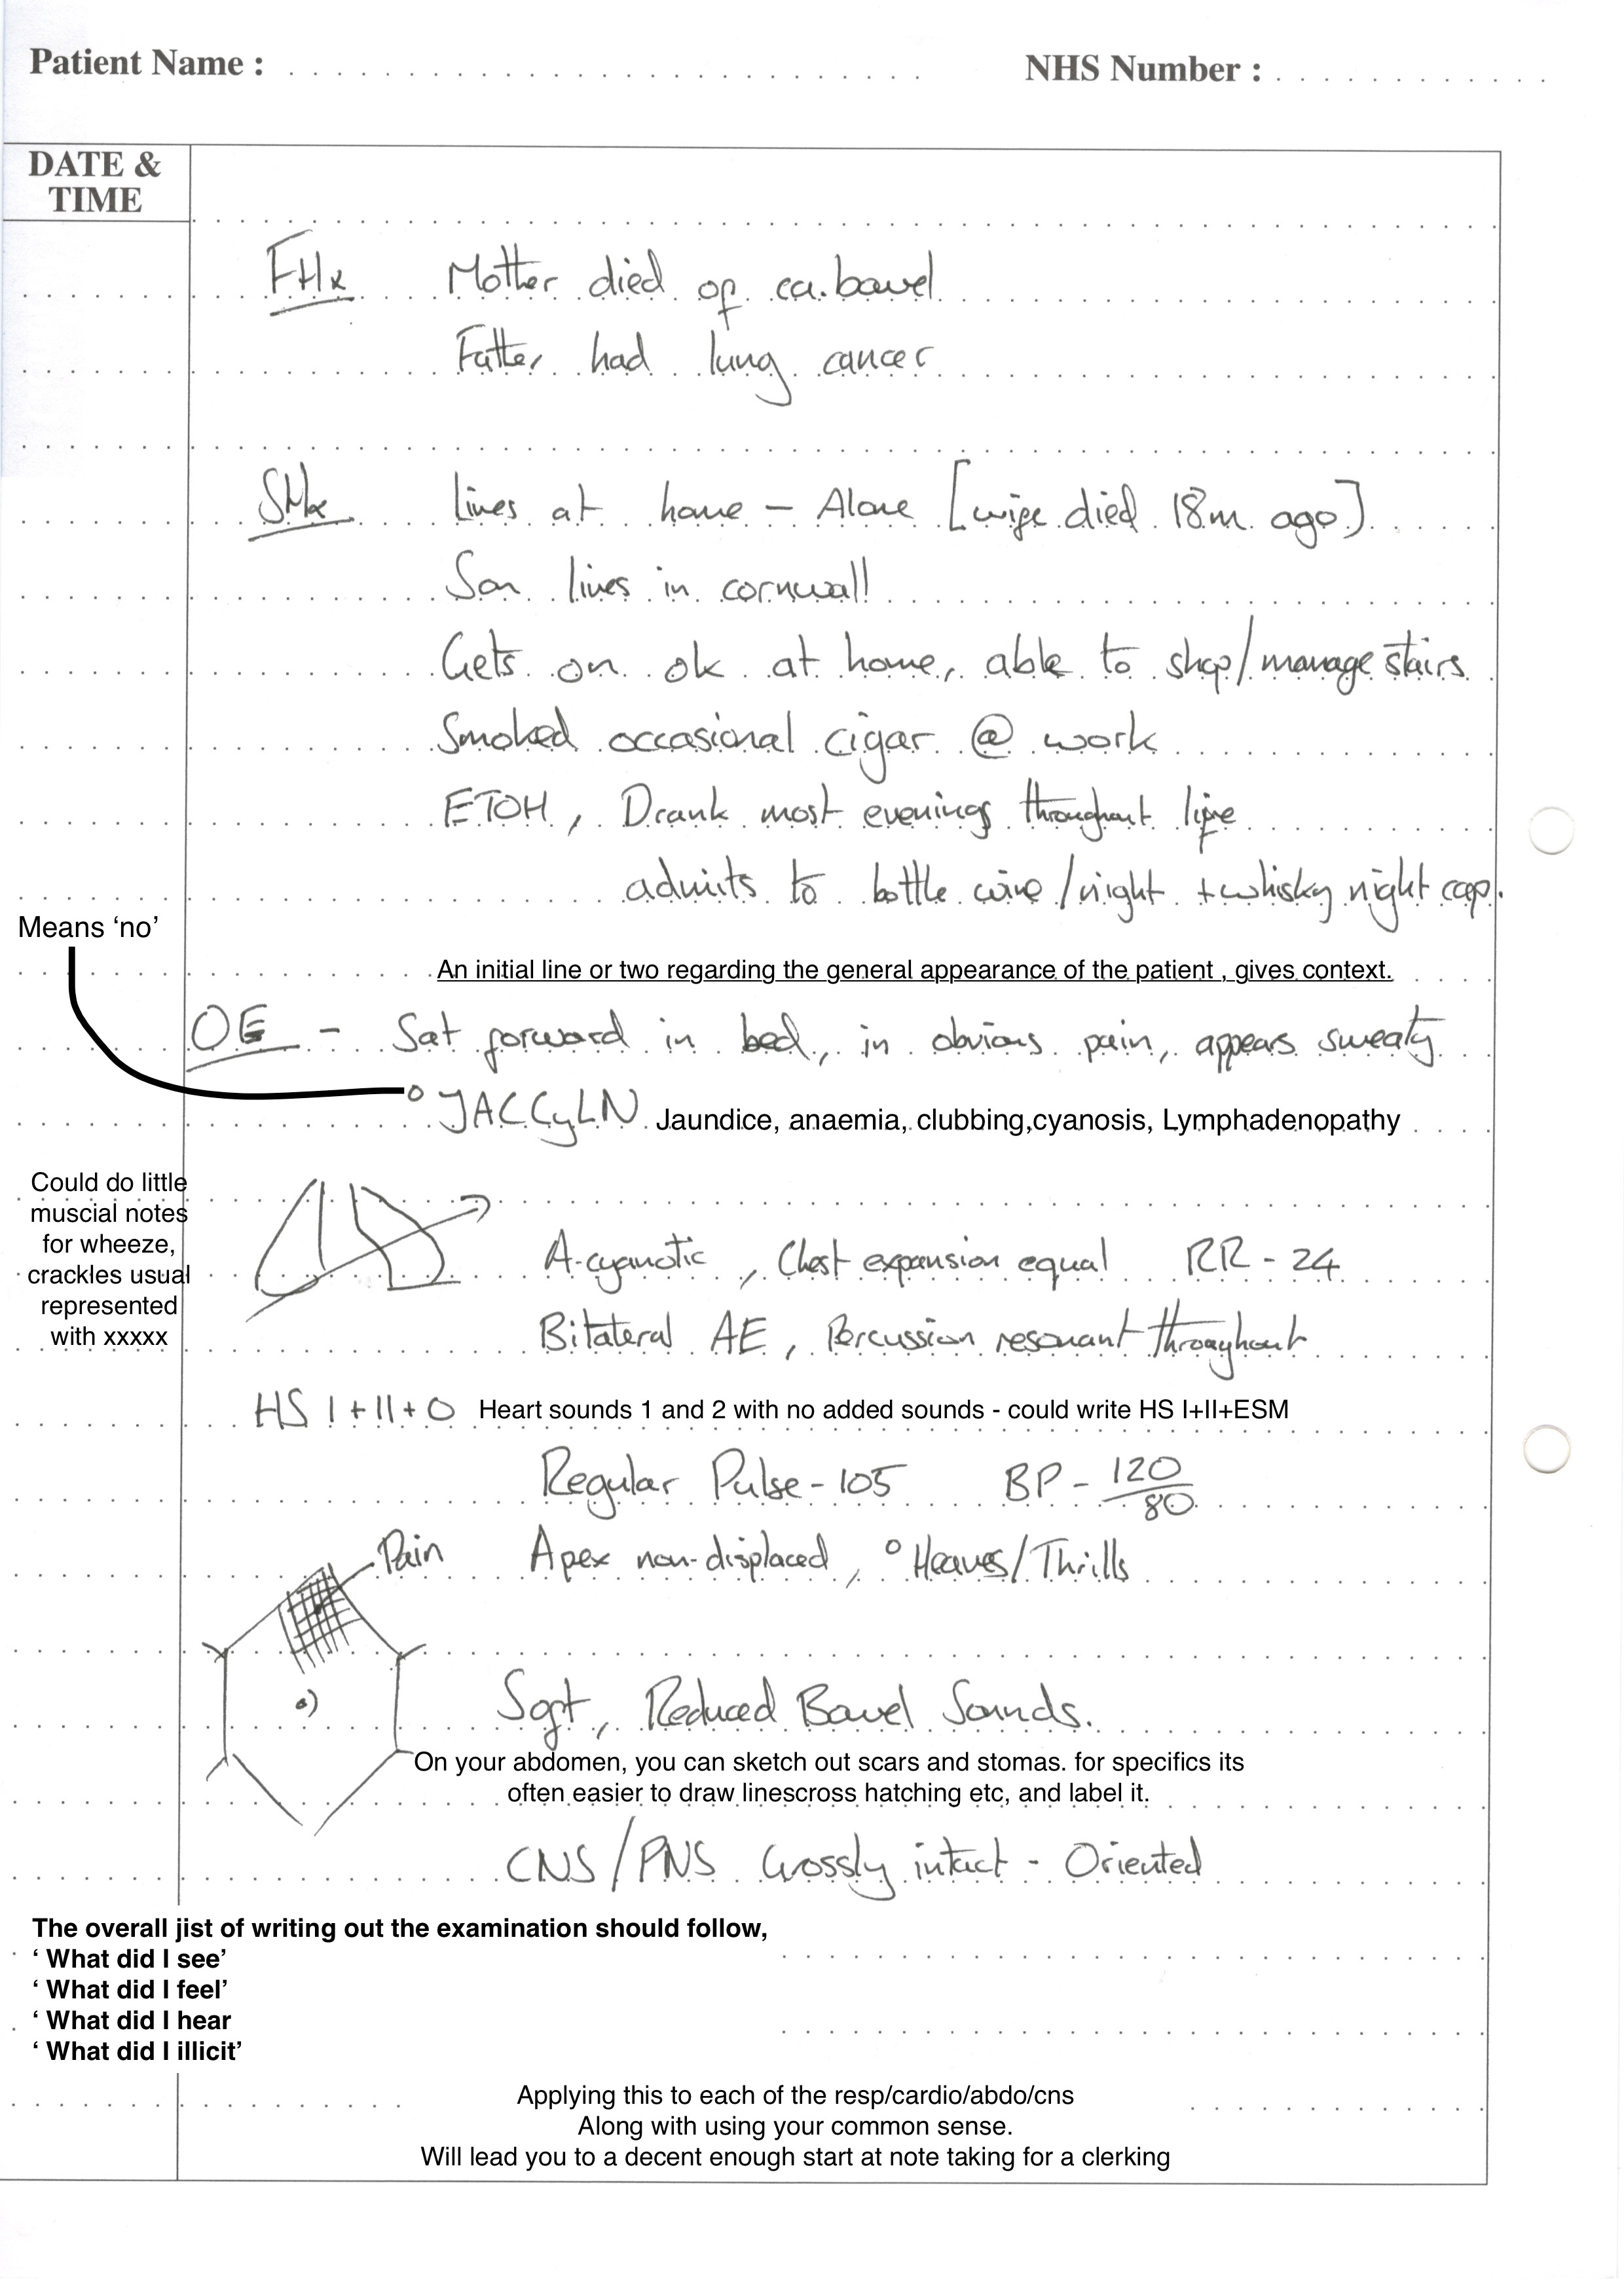 Patient Name :
NHS Number :
DATE &
TIME
FHx Mother died of ca. bowel
Father had lung cancer
SHx Lives at home - Alone [wife died 18m ago]
Son lives in cornwall
Gets on ok at home, able to shop/manage stairs
Smoked occasional cigar @ work
ETOH, Drank most evenings throughout life
admits to bottle wine/night + whisky night cap.
Means ‘no’
An initial line or two regarding the general appearance of the patient , gives context.
OE - Sat forward in bed, in obvious pain, appears sweaty
° JACCyLN Jaundice, anaemia, clubbing,cyanosis, Lymphadenopathy
Could do little
muscial notes
for wheeze,
crackles usual
represented
with xxxxx
A-cyanotic, Chest expansion equal RR - 24
Bilateral AE, Percussion resonant throughout
HS I + II + O Heart sounds 1 and 2 with no added sounds - could write HS I+II+ESM
Regular Pulse - 105 BP - 120/80
Pain Apex non-displaced, ° Heaves/Thrills
Soft, Reduced Bowel Sounds.
On your abdomen, you can sketch out scars and stomas. for specifics its
often easier to draw linescross hatching etc, and label it.
CNS/PNS Grossly intact - Oriented
The overall jist of writing out the examination should follow,
‘ What did I see’
‘ What did I feel’
‘ What did I hear
‘ What did I illicit’
Applying this to each of the resp/cardio/abdo/cns
Along with using your common sense.
Will lead you to a decent enough start at note taking for a clerking